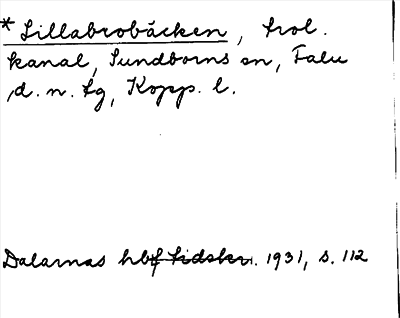 * Lillabrobäcken, trol.
kanal, Sundborns sn, Falu
d. n. tg, Kopp. l.
Dalarnas hbf tidskr. 1931, s. 112